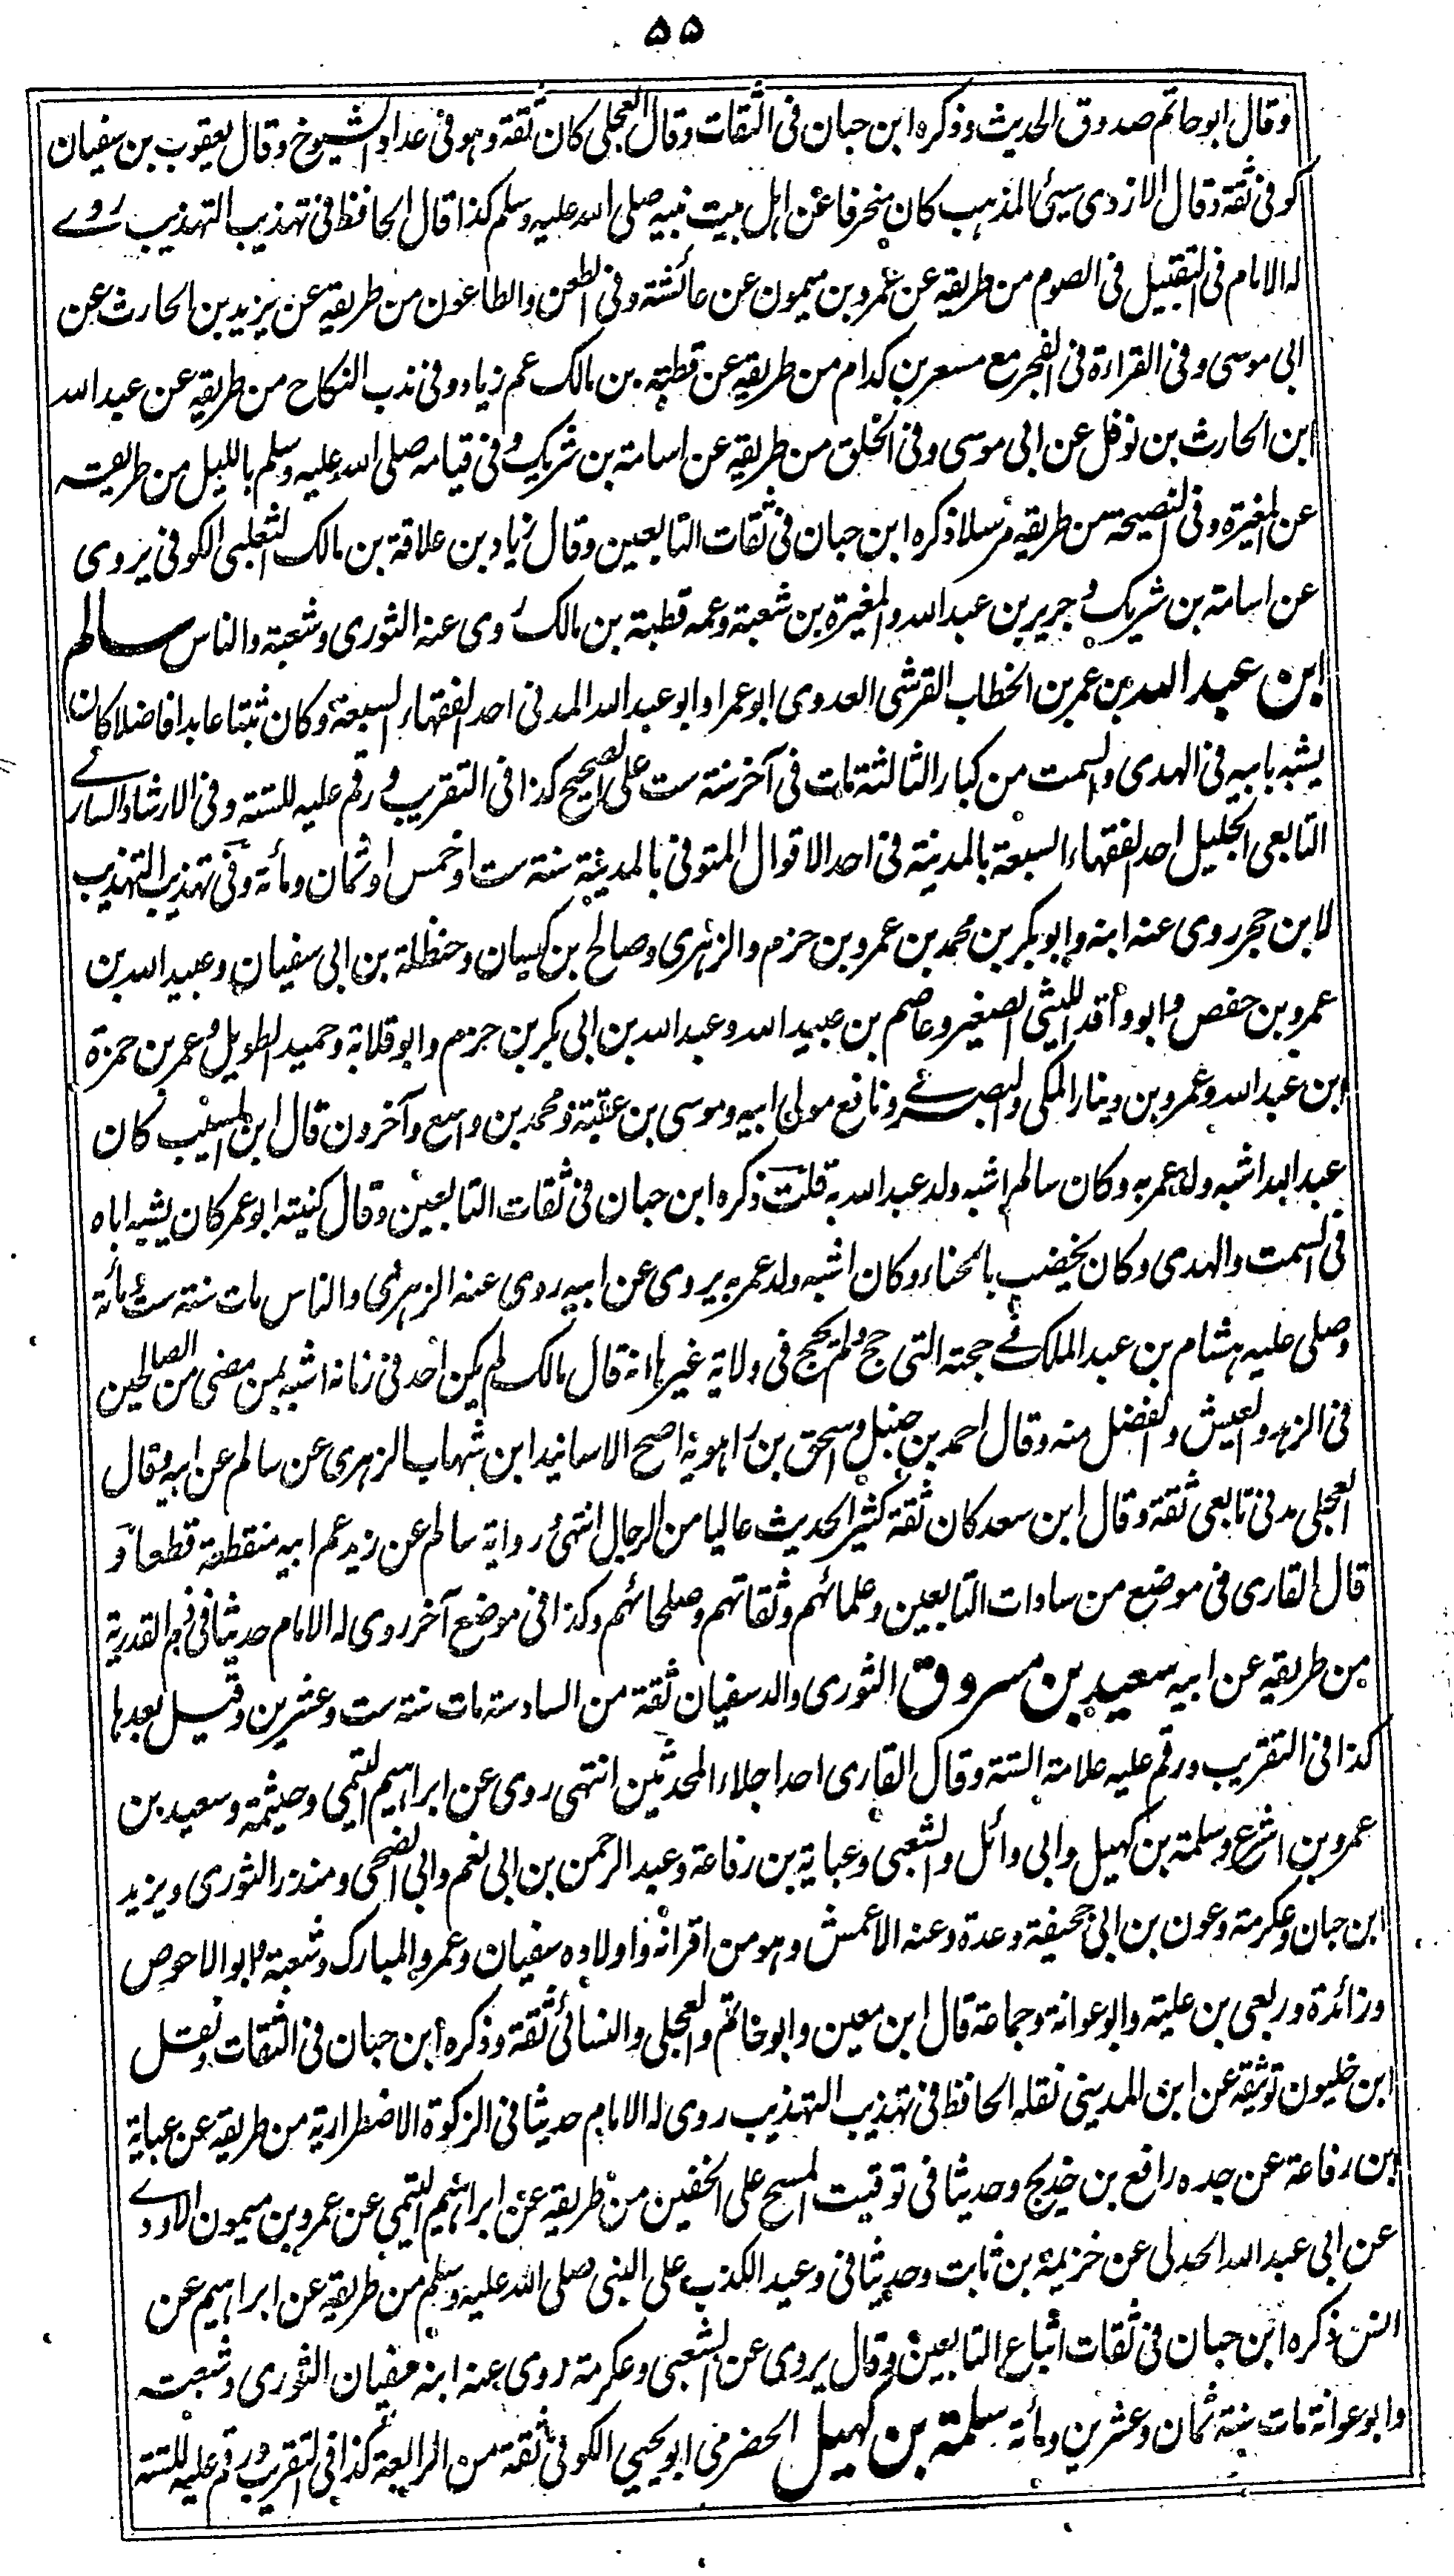 ۵۵
وقال ابو حاتم صدوق الحديث وذكره ابن حبان فى الثقات وقال العجلى كان ثقة وهو فى عداد الشيوخ وقال يعقوب بن سفيان
كوفى ثقة وقال الازدى سيئ المذهب كان منحرفا عن اهل بيت نبيه صلى الله عليه وسلم كذا قال الحافظ فى تهذيب التهذيب روے
له الامام فى التقبيل فى الصوم من طريقه عن عمرو بن ميمون عن عائشة وفى الطعن والطاعون من طريقه عن يزيد بن الحارث عن
ابى موسى وفى القراءة فى الفجر مع مسعر بن كدام من طريقه عن قطبة بن مالك عم زياد وفى ندب النكاح من طريقه عن عبد الله
ابن الحارث بن نوفل عن ابى موسى وفى الخلق من طريقه عن اسامة بن شريك وفى قيامه صلى الله عليه وسلم بالليل من طريقه
عن المغيرة وفى النصيحة من طريقه مرسلا ذكره ابن حبان فى ثقات التابعين وقال زياد بن علاقة بن مالك الثعلبى الكوفى يروى
عن اسامة بن شريك وجرير بن عبد الله والمغيرة بن شعبة وعمه قطبة بن مالك روى عنه الثورى وشعبة والناس سالم
ابن عبد الله بن عمر بن الخطاب القرشى العدوى ابو عمر او ابو عبد الله المدنى احد الفقهاء السبعة وكان ثبتا عابدا فاضلا كان
يشبه بابيه فى الهدى والسمت من كبار الثالثة مات فى آخر سنة ست على الصحيح كذا فى التقريب ورقم عليه للستة وفى الارشاد السارے
التابعى الجليل احد الفقهاء السبعة بالمدينة فى احد الاقوال المتوفى بالمدينة سنة ست او خمس او ثمان ومأة وفى تهذيب التهذيب
لابن حجر روى عنه ابنه وابو بكر بن محمد بن عمرو بن حزم والزهرى وصالح بن كيسان وحنظلة بن ابى سفيان وعبيد الله بن
عمرو بن حفص وابو واقد الليثى الصغير وعاصم بن عبيد الله وعبد الله بن ابى بكر بن حزم وابو قلابة وحميد الطويل وعمر بن حمزة
ابن عبد الله وعمرو بن دينار المكى والبصرے ونافع مولى ابيه وموسى بن عقبة ومحمد بن واسع وآخرون قال ابن المسيب كان
عبد الله اشبه ولد عمر به وكان سالم اشبه ولد عبد الله به قلت ذكره ابن حبان فى ثقات التابعين وقال كنيته ابو عمر كان يشبه اباه
فى السمت والهدى وكان يخضب بالحناء وكان اشبه ولد عمر به يروى عن ابيه روى عنه الزهرى والناس مات سنة ست مأة
وصلى عليه هشام بن عبد الملك فے حجته التى حج ولم يحج فى ولاية غيرها انه قال مالك لم يكن احد فى زمانه اشبه بمن مضى من الصالحين
فى الزهد والعيش والفضل منه وقال احمد بن حنبل واسحق بن راهوية اصح الاسانيد ابن شهاب الزهرى عن سالم عن ابيه وقال
العجلى مدنى تابعى ثقة وقال ابن سعد كان ثقة كثير الحديث عاليا من الرجال انتهى رواية سالم عن زيد عم ابيه منقطعة قطعا و
قال القارى فى موضع من سادات التابعين وعلمائهم وثقاتهم وصلحائهم وكذا فى موضع آخر روى له الامام حديثا فى ذم القدرية
من طريقه عن ابيه سعيد بن مسروق الثورى والد سفيان ثقة من السادسة مات سنة ست وعشرين وقيل بعدها
كذا فى التقريب ورقم عليه علامة الستة وقال القارى احد اجلاء المحدثين انتهى روى عن ابراهيم التيمى وخيثمة وسعيد بن
عمرو بن اشوع وسلمة بن كهيل وابى وائل والشعبى وعباية بن رفاعة وعبد الرحمن بن ابى نعم وابى الضحى ومنذر الثورى ويزيد
ابن حبان وعكرمة وعون بن ابى جحيفة وعدة وعنه الاعمش وهو من اقرانه واولاده سفيان وعمرو المبارك وشعبة وابو الاحوص
وزائدة وربعى بن علية وابو عوانة وجماعة قال ابن معين وابو حاتم والعجلى والنسائى ثقة وذكره ابن حبان فى الثقات ونقل
ابن خلفون توثيقه عن ابن المدينى نقله الحافظ فى تهذيب التهذيب روى له الامام حديثا فى الزكوة الاضطرارية من طريقه عن عباية
بن رفاعة عن جده رافع بن خديج وحديثا فى توقيت المسح على الخفين من طريقه عن ابراهيم التيمى عن عمرو بن ميمون الاودے
عن ابى عبد الله الجدلى عن خزيمة بن ثابت وحديثا فى وعيد الكذب على النبى صلى الله عليه وسلم من طريقه عن ابراهيم عن
انس ذكره ابن حبان فى ثقات اتباع التابعين وقال يروى عن الشعبى وعكرمة روى عنه ابنه سفيان الثورى وشعبة
وابو عوانة مات سنة ثمان وعشرين ومأة سلمة بن كهيل الحضرمى ابو يحيى الكوفى ثقة من الرابعة كذا فى التقريب ورقم عليه للستة